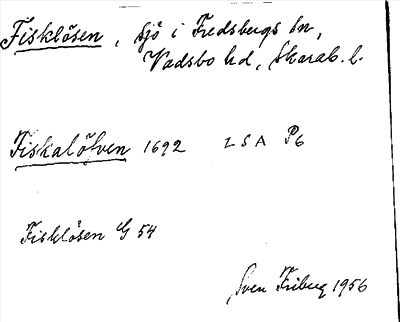 Fisklösen, sjö i Fredsbergs sn,
Vadsbo hd, Skarab. l.
Fiskalöfven 1692 LSA P6
Fisklösen G 54
Sven Friberg 1956